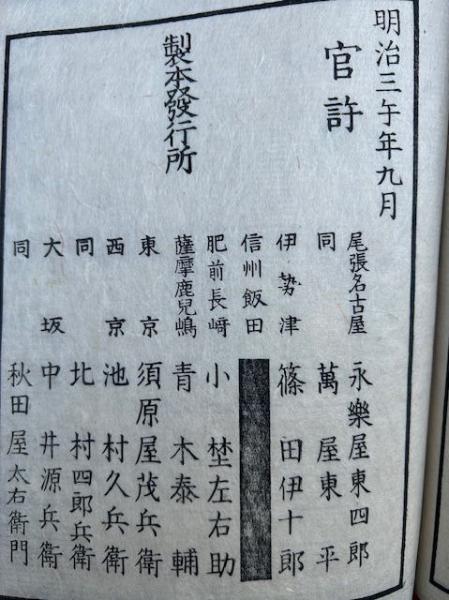 明治三午年九月
官許
製本發行所
尾張名古屋 永樂屋東四郎
同 萬屋東平
伊勢津 篠田伊十郎
信州飯田
肥前長﨑 小埜左右助
薩摩鹿兒嶋 青木泰輔
東京 須原屋茂兵衛
西京 池村久兵衛
同 北村四郎兵衛
大坂 中井源兵衛
同 秋田屋太右衛門